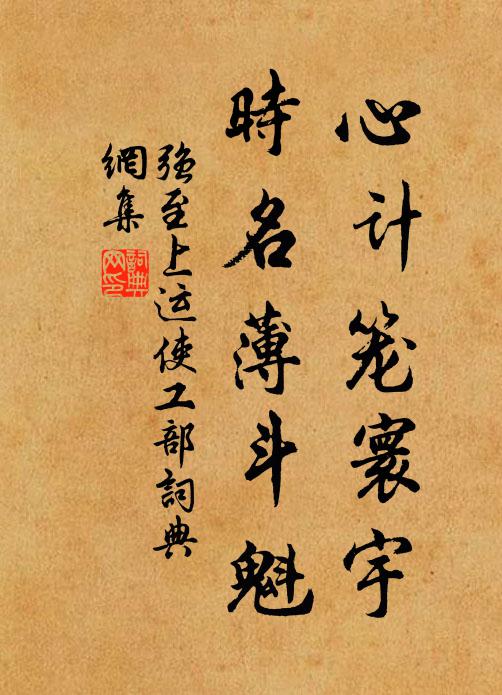 心计笼寰宇
時名薄斗魁
强至上运使工部詞典
網集
詞典
网印